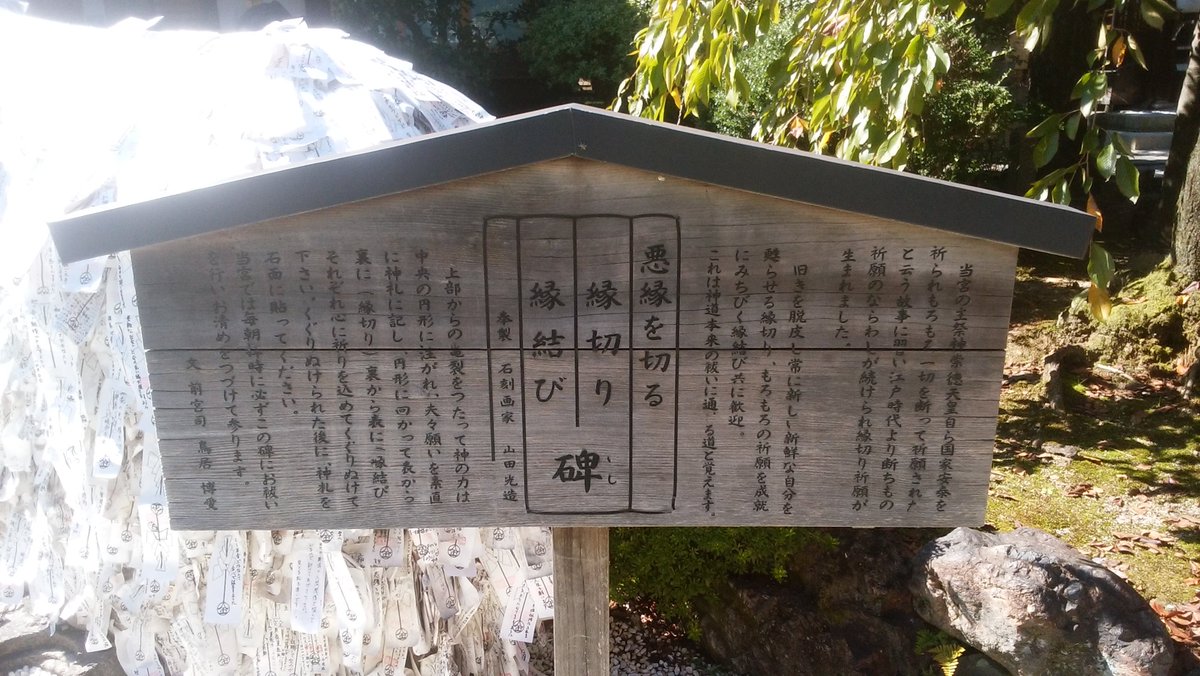 当宮の主祭神崇徳天皇自ら国家安泰を
祈られもろもろ一切を断って祈願された
と云う故事に習い江戸時代より断ちもの
祈願のならわしが続けられ縁切り祈願が
生まれました。
旧きを脱皮し常に新しい新鮮な自分を
甦らせる縁切り、もろもろの祈願を成就
にみちびく縁結び共に歓迎。
これは神道本来の祓いに通ずる道と覚えます。
悪縁を切る
縁切り
縁結び
碑
いし
奉製 石刻画家 山田光造
上部からの亀裂をつたって神の力は
中央の円形に注がれ、夫々願いを素直
に神札に記し、円形に向かって表から
裏に(縁切り)裏から表に(縁結び)
それぞれ心に祈りを込めてくぐりぬけて
下さい。くぐりぬけられた後に、神札を
石面に貼ってください。
当宮では毎朝時に必ずこの碑にお祓い
を行いお清めをつづけて参ります。
文 前宮司 鳥居 博愛